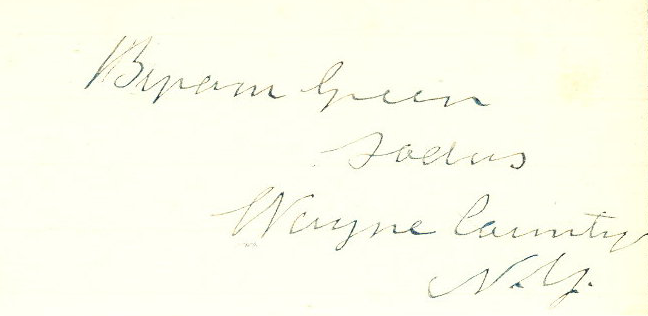 Byram Green
Sodus
Wayne County
N.Y.